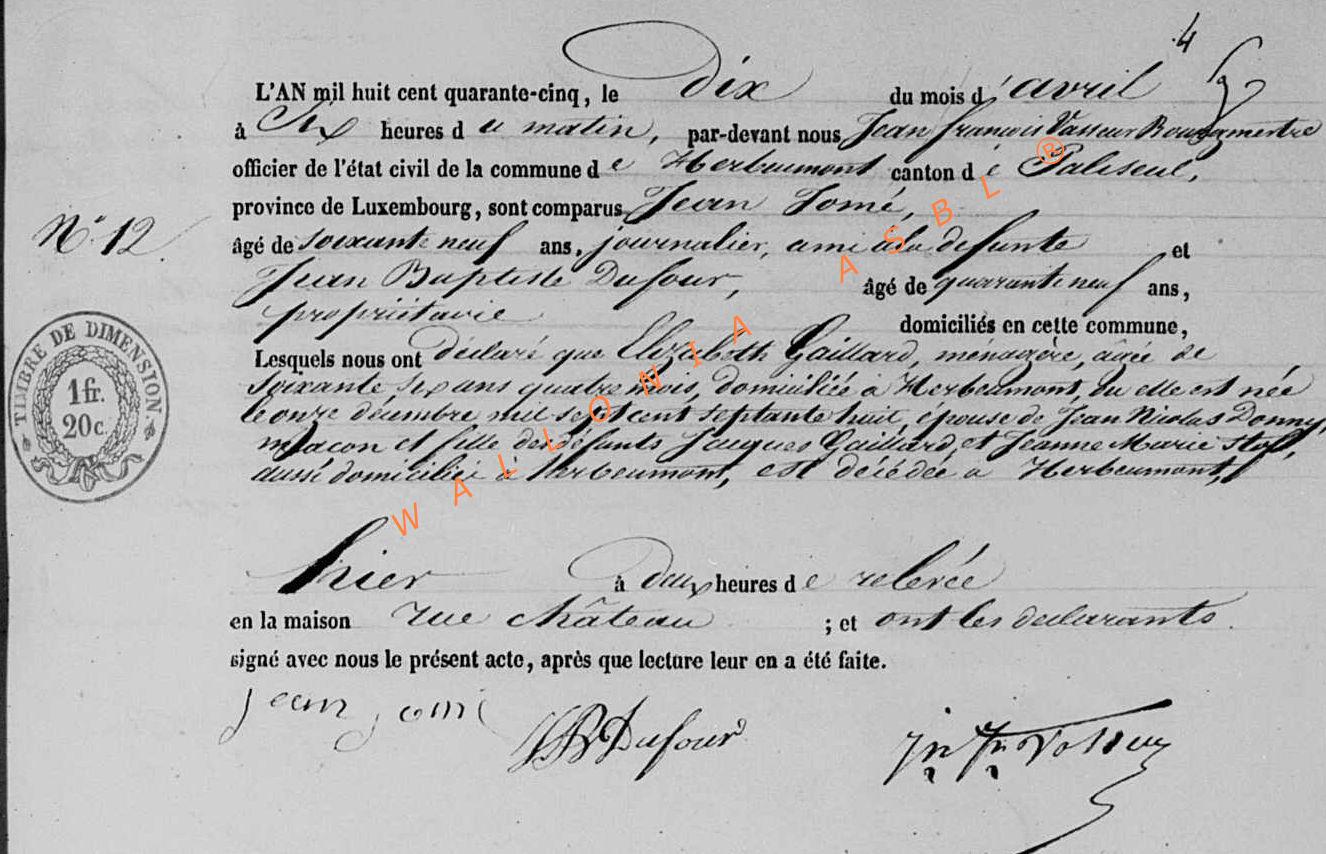 4
L'AN mil huit cent quarante-cinq, le dix du mois d'avril
à Six heures du matin, par-devant nous Jean françois Vasseur Bourgmestre
officier de l'état civil de la commune de Herbeumont canton de Paliseul,
province de Luxembourg, sont comparus Jean Jomé,
N° 12
âgé de soixante neuf ans, journalier, ami à la defunte et
Jean Baptiste Dufour, âgé de quarante neuf ans,
propriétaire domiciliés en cette commune,
Lesquels nous ont déclaré que Elizabeth Gaillard, ménagère, âgée de
soixante six ans quatre mois, domiciliée à Herbeumont, ou elle est née
le onze décembre mil sept cent septante huit, épouse de Jean Nicolas Donny,
maçon et fille des défunts Jacques Gaillard, et Jeanne Marie
aussi domiciliée à Herbeumont, est décédée à Herbeumont,
TIMBRE DE DIMENSION
1 fr.
20 c.
hier à deux heures de relevée
en la maison rue château ; et ont les declarants
signé avec nous le présent acte, après que lecture leur en a été faite.
jean jomé
JB Dufour
Jn Fs Vasseur
WALLONIA ASBL ®